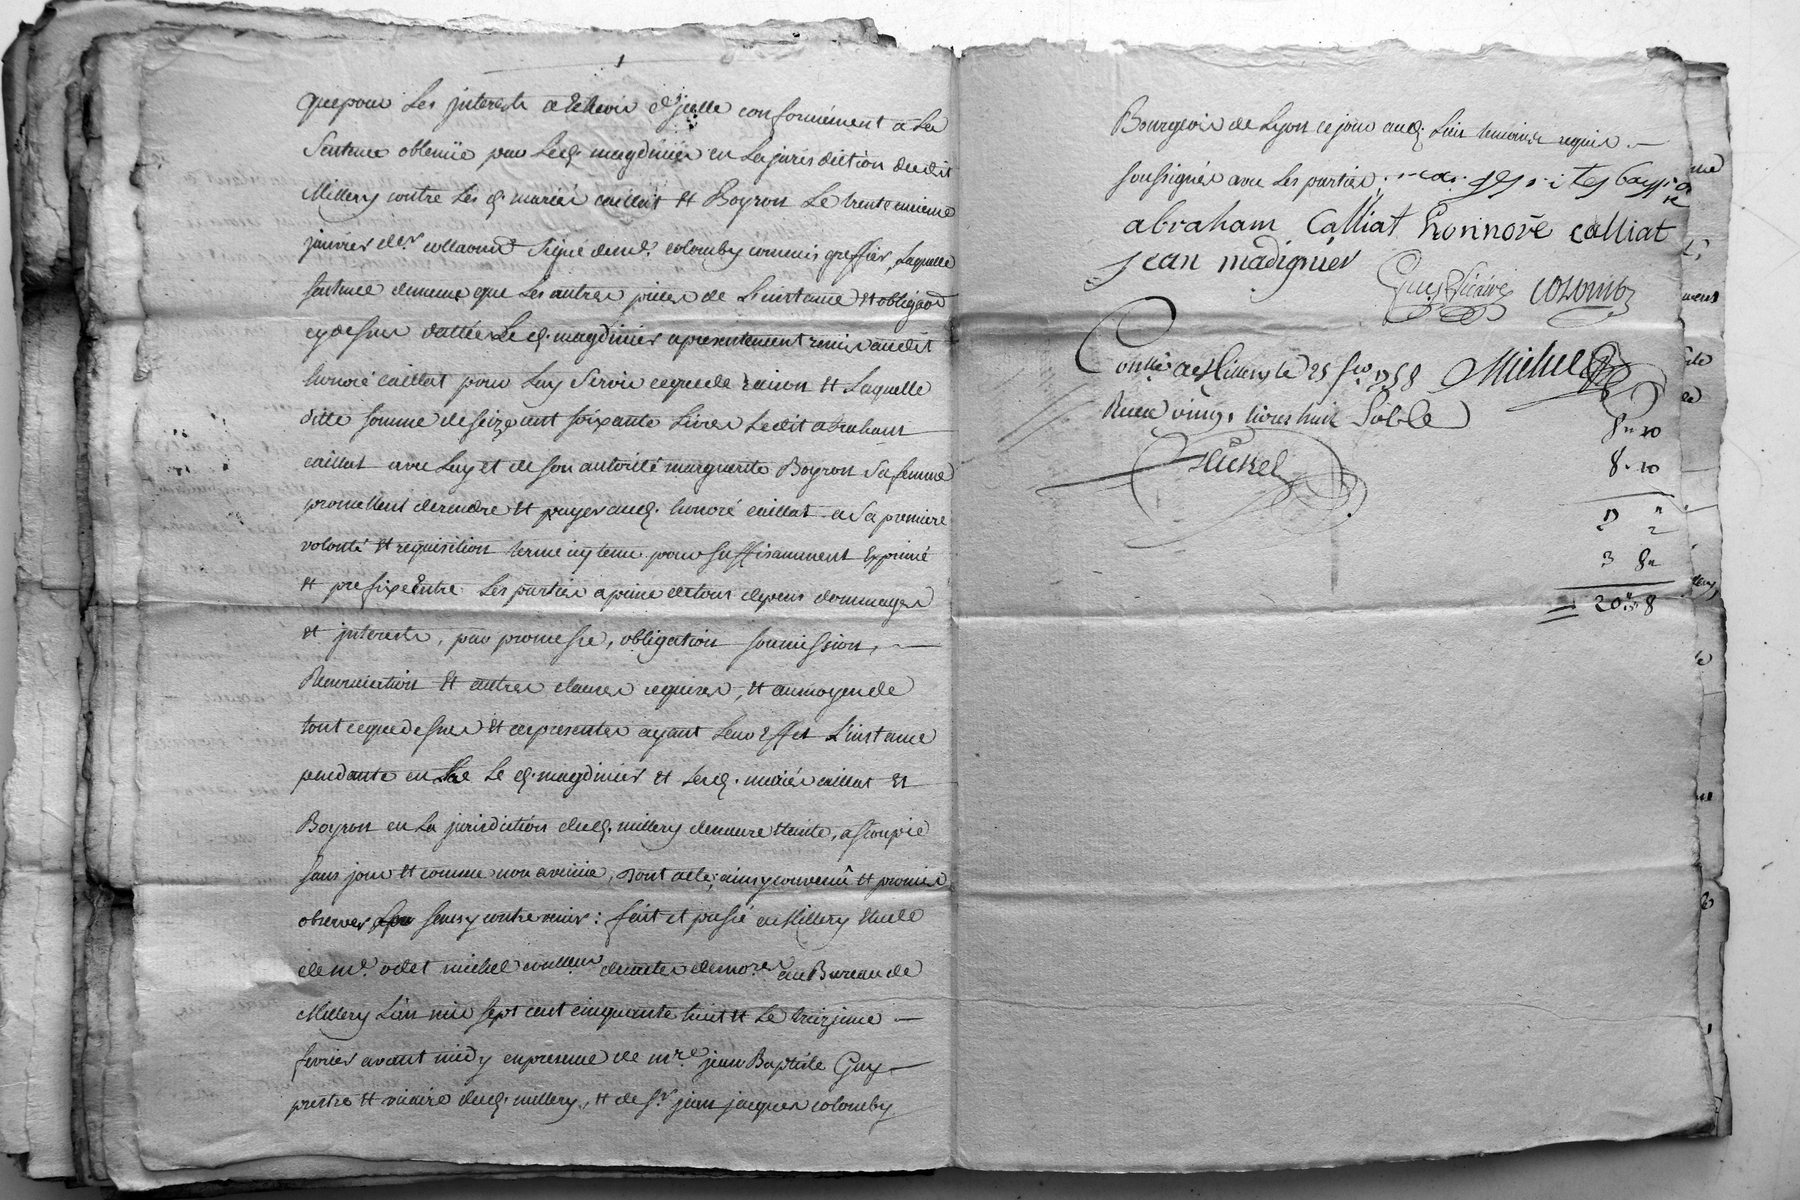 que pour Les jnterests a Echeoir d'jcelle conformément a La
Sentence obtenüe par Led. magdinier en La jurisdiction dudit
Millery contre Les d. mariés caillat Et Boyron Le trente unieme
janvier der. collaonné Signé dud. colomby commis greffier, Laquelle
sentence de meme que Les autres pieces de L'instance Et obligaon
cy dessus dattée Le d. magdinier a presentement remis audit
honoré caillat pour Luy Servir ce que de raison Et Laquelle
ditte somme de seize cent soixante Livres Ledit abraham
caillat avec Luy et de son autorité marguerite Boyron Sa femme
promettent de rendre Et payer aud. honoré caillat a Sa premiere
volonté Et requisition terme icy tenu pour suffisamment Exprimé
Et prefixe Entre Les parties a peine de tous depens dommages
Et jnterests, par promesse, obligation soumission,
Renonciation Et autres clauses requises, Et au moyen de
tout ce que dessus Et ces presentes ayant Leur Effet L'instance
pendante en Le d. magdinier Et Lesd. mariés caillat Et
Boyron en La jurisdiction dud. millery demeure Eteinte, assoupie
sans jour Et comme non avenüe, Dont acte, ainsy convenû Et promis
observer sans y contrevenir : fait et passé a Millery Etude
de me. odet michel des actes des nores. au Bureau de
Millery L'an mil sept cent cinquante huit Et Le treizieme
fevrier avant midy en presence de mre. jean Baptiste Guy
prestre Et vicaire dud. millery, Et de sr. jean jacques colomby
Bourgeois de Lyon ce jour aud. Lieu temoins requis
soussignés avec Les parties
abraham Calliat honnoré calliat
jean madignier
Guy Vicaire colomby
Conllé a Millery le 25 fer. 1758 Michel
Recu vingt livres huit sols
Michel
8 " 10
8 . 10
17 "
3 8
20 " 8